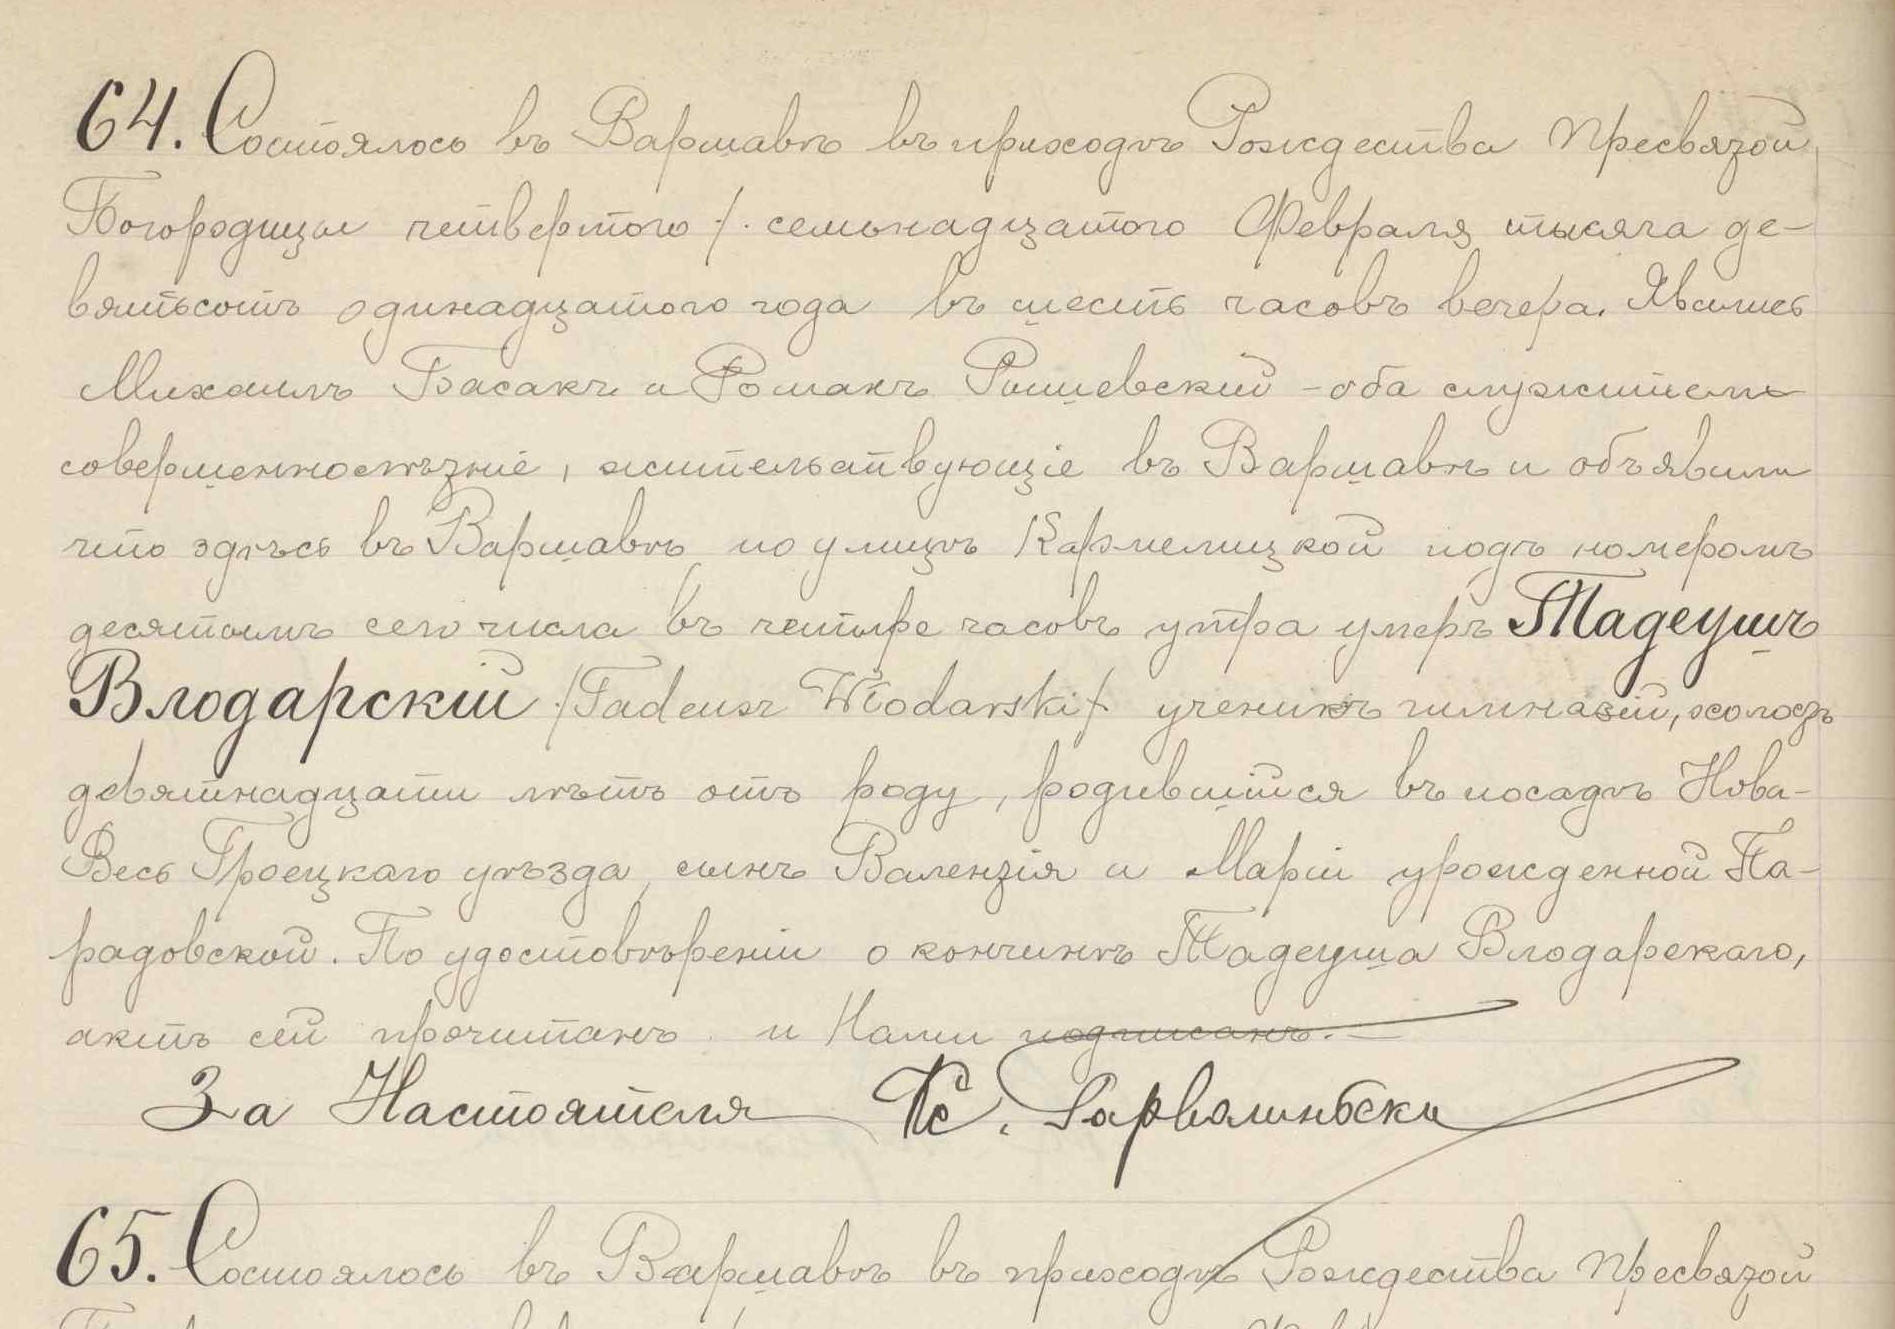 64. Состоялось въ Варшавѣ въ приходѣ Рождества Пресвязой
Богородицы четвертого /. семьнадцатого Февраля тысяча де-
вятьсотъ одинадцатого года въ шесть часовъ вечера. Явились
Михаилъ Басакъ и Романъ Ришевский - оба служители
совершеннолѣзніе, жительствующіе въ Варшавѣ и объявили
что здѣсь въ Варшавѣ по улицѣ Кармелицкой подъ номеромъ
десятымъ сего числа въ четыре часовъ утра умеръ Тадеушъ
Влодарскій /Tadeusz Włodarski/ ученикъ гимназіи, холозъ
девятнадцати лѣтъ отъ роду, родившійся въ посадѣ Нова-
Весь Гроецкаго уѣзда, сынъ Валензія и Маріи урожденной Па-
радовской. По удостовѣреніи о кончинѣ Тадеуша Влодарскаго,
актъ сей прочитанъ и Нами подписанъ. —
За Настоятеля Кс.
65. Состоялось въ Варшавѣ въ приходѣ Рождества Пресвязой